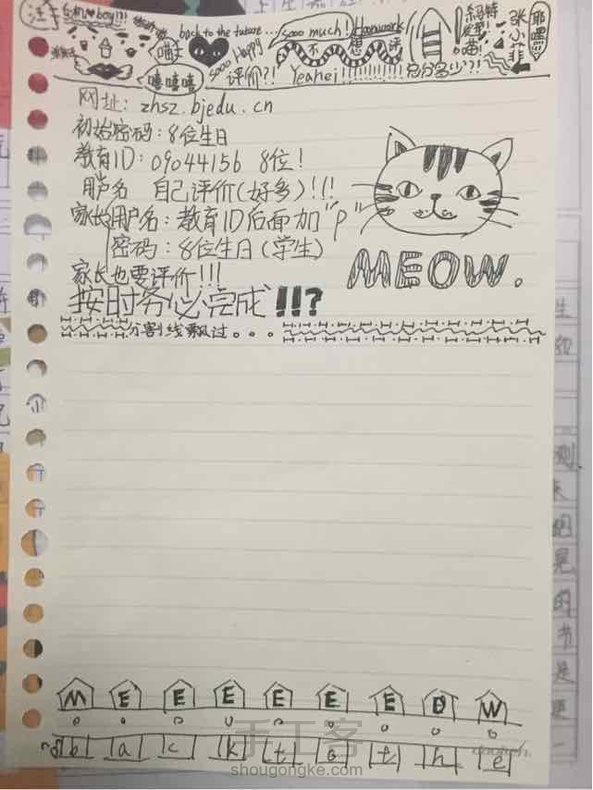 back to the future...
sooo much! Homework
喵
sooo Happy
不想读
张小菲
耶嘿!
嘻嘻嘻
评价?!
Yeahei!
总分多少?!
网址: zhsz.bjedu.cn
初始密码:8位生日
教育ID:09044156 8位!
用户名 自己评价(好多)!!!
家长用户名:教育ID后面加"P"
密码:8位生日(学生)
家长也要评价!!!
MEOW.
按时务必完成!!!?
分割线飘过。。。
M E E E E E E O W
b a c k t o t h e
手工客
shougongke.com